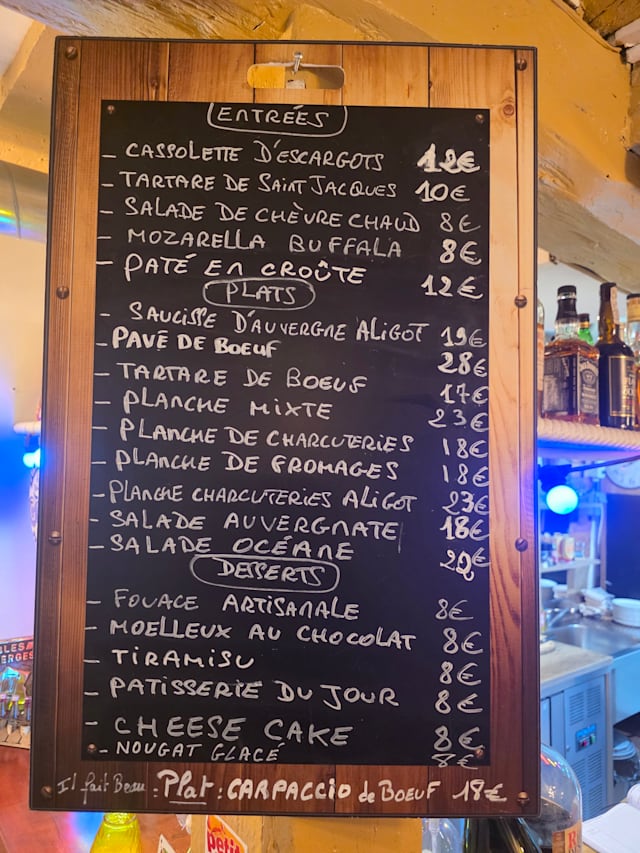 ENTRÉES
- CASSOLETTE D'ESCARGOTS 12€
- TARTARE DE SAINT JACQUES 10€
- SALADE DE CHÈVRE CHAUD 8€
- MOZARELLA BUFFALA 8€
- PATÉ EN CROÛTE 12€
PLATS
- SAUCISSE D'AUVERGNE ALIGOT 19€
- PAVÉ DE BOEUF 28€
- TARTARE DE BOEUF 17€
- PLANCHE MIXTE 23€
- PLANCHE DE CHARCUTERIES 18€
- PLANCHE DE FROMAGES 18€
- PLANCHE CHARCUTERIES ALIGOT 23€
- SALADE AUVERGNATE 18€
- SALADE OCÉANE 20€
DESSERTS
- FOUACE ARTISANALE 8€
- MOELLEUX AU CHOCOLAT 8€
- TIRAMISU 8€
- PATISSERIE DU JOUR 8€
- CHEESE CAKE 8€
- NOUGAT GLACÉ 8€
Il fait Beau : Plat : CARPACCIO de BOEUF 18€